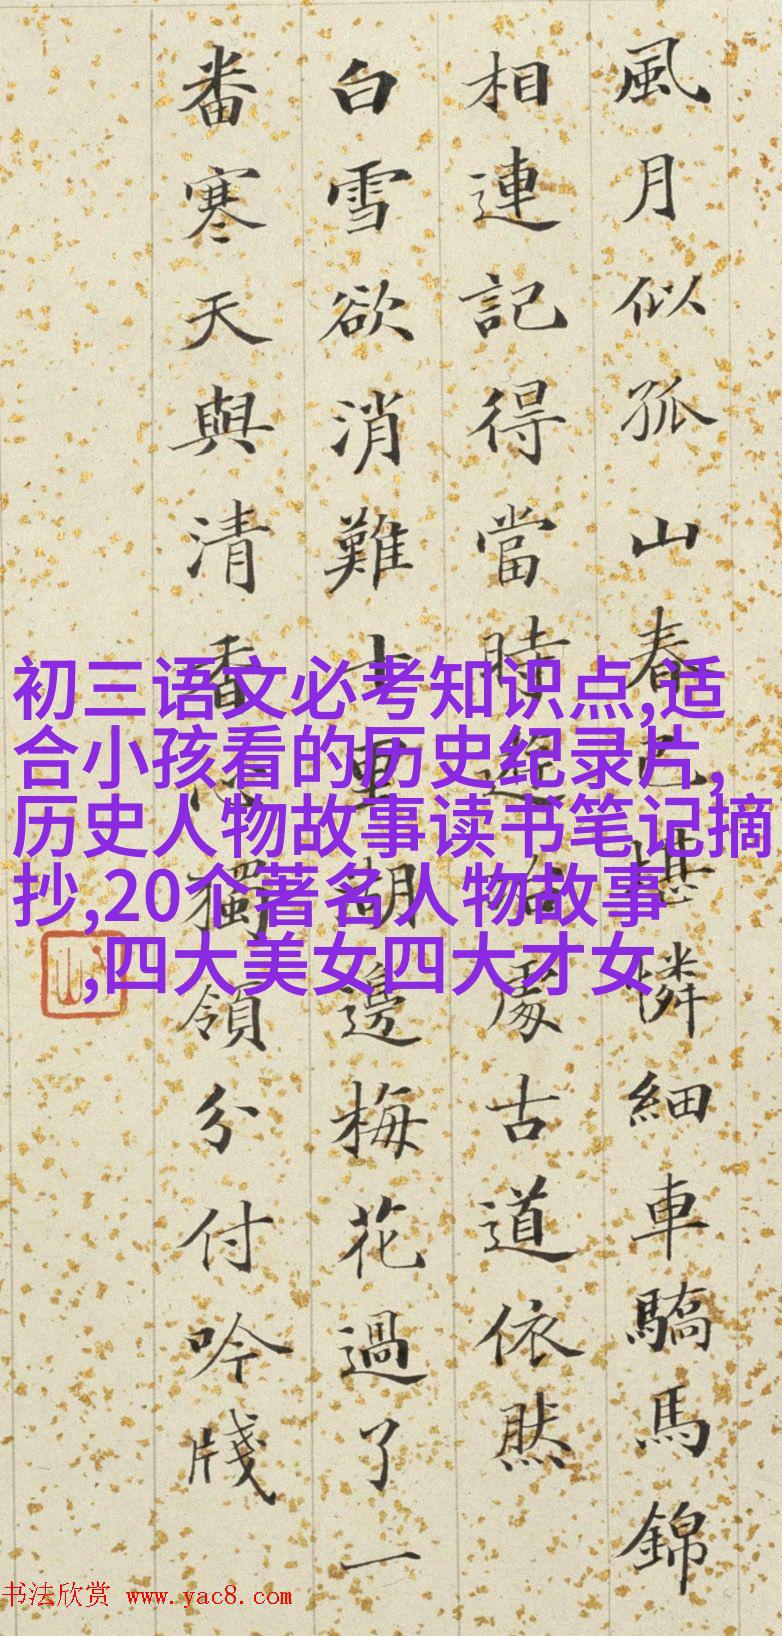 風月似孤山春已堪憐細車驕馬錦
相連記得當時遊冶處古道依然
白雪欲消難十湖邊梅花過了一
番寒天與清香心獨領分付吟牋
初三语文必考知识点,适
合小孩看的历史纪录片,
历史人物故事读书笔记摘
抄,20个著名人物故事
,四大美女四大才女
书法欣赏 www.yac8.com